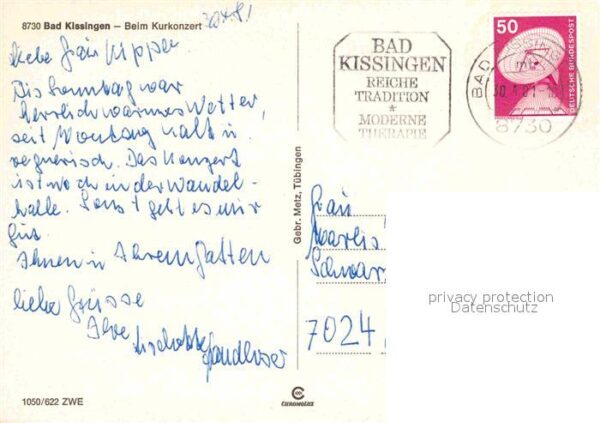 8730 Bad Kissingen – Beim Kurkonzert
Liebe Frau Kipper.
Bis Sonntag war
herrlich warmes Wetter,
seit Montag kalt u.
regnerisch. Das Konzert
ist noch in der Wandel-
halle. Sonst geht es mir
gut.
Ihnen u Ihrem Gatten
liebe Grüsse
Ihre
1050/622 ZWE
Gebr. Metz, Tübingen
BAD
KISSINGEN
REICHE
TRADITION
*
MODERNE
THERAPIE
50
DEUTSCHE BUNDESPOST
BAD KISSINGEN
8730
Frau
Marlis
Schwar
7024
privacy protection
Datenschutz